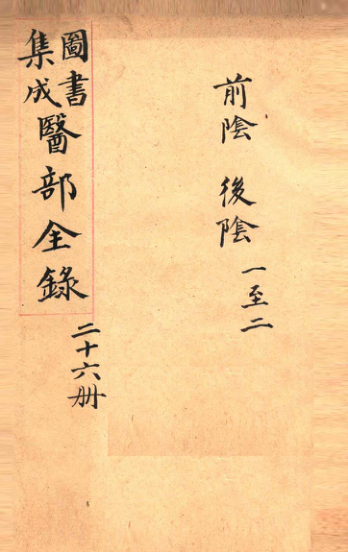 圖書集成醫部全錄
二十六册
前陰 後陰 一至二